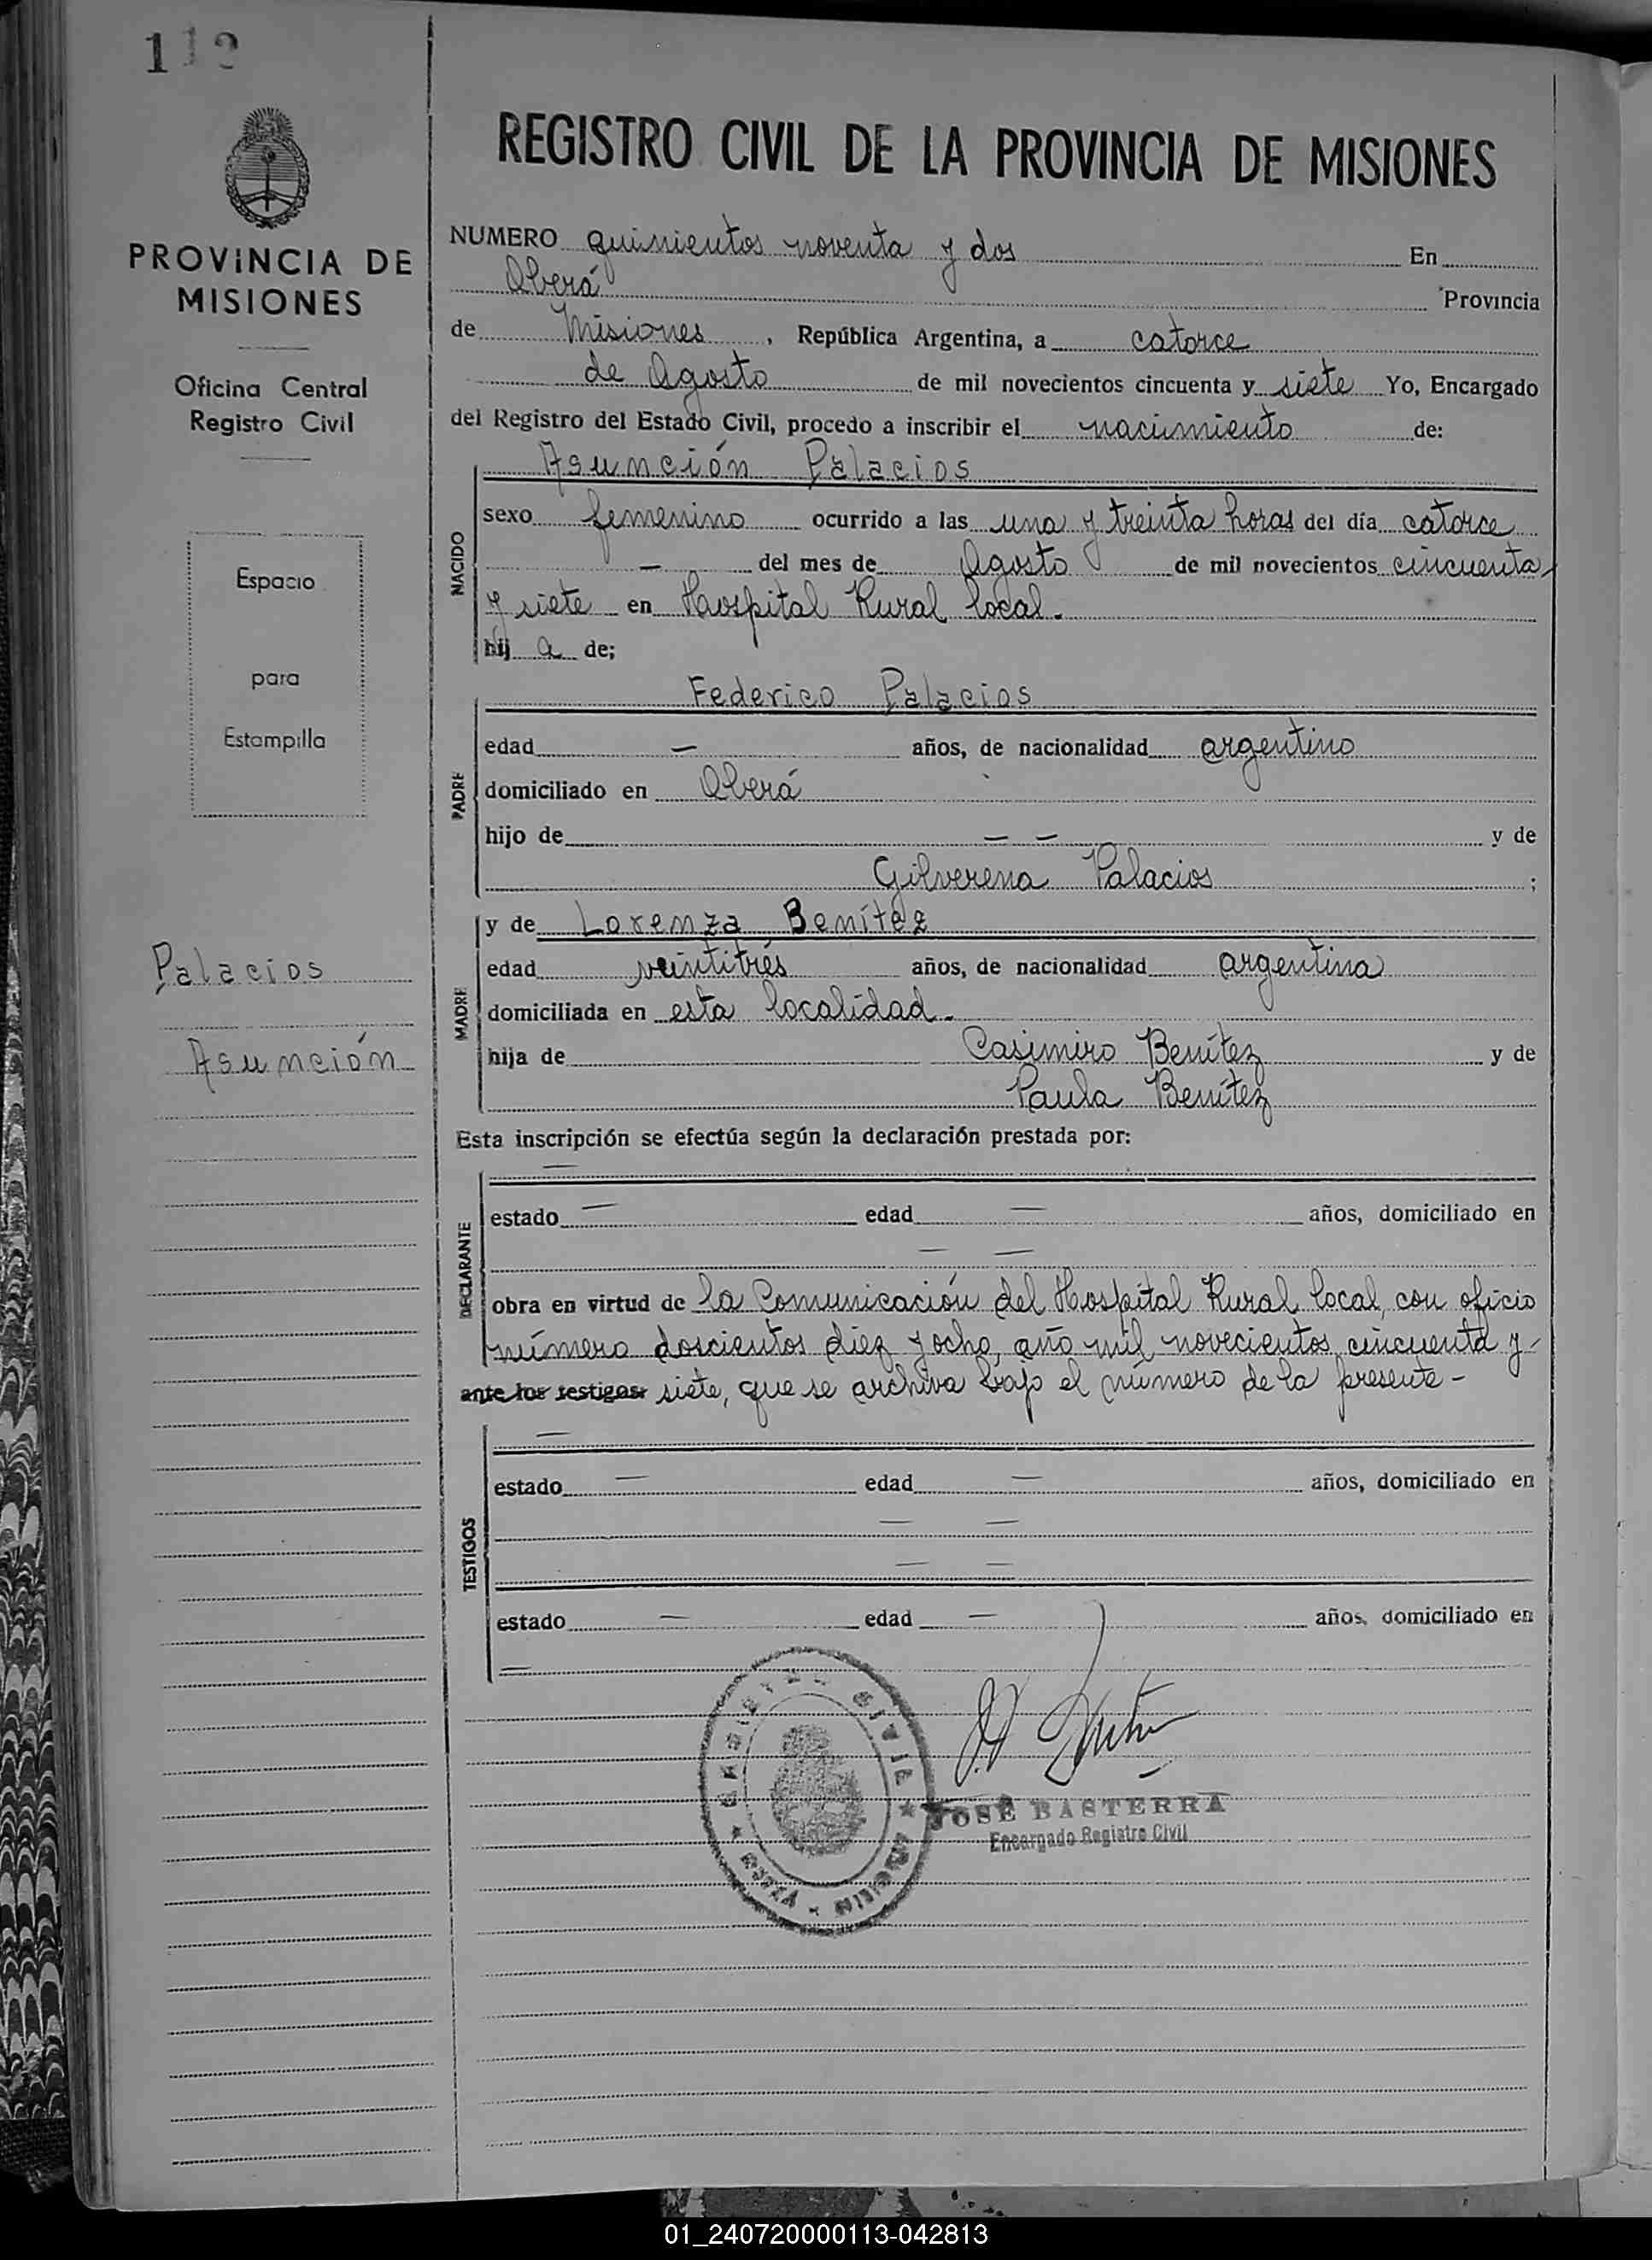 112
PROVINCIA DE
MISIONES
Oficina Central
Registro Civil
Espacio
para
Estampilla
Palacios
Asunción
REGISTRO CIVIL DE LA PROVINCIA DE MISIONES
NUMERO quinientos noventa y dos En
Oberá Provincia
de Misiones, República Argentina, a catorce
de Agosto de mil novecientos cincuenta y siete Yo, Encargado
del Registro del Estado Civil, procedo a inscribir el nacimiento de:
NACIDO
Asunción Palacios
sexo femenino ocurrido a las una y treinta horas del día catorce
— del mes de Agosto de mil novecientos cincuenta
y siete en Hospital Rural local.
hij a de;
PADRE
Federico Palacios
edad — años, de nacionalidad argentino
domiciliado en Oberá
hijo de — — y de
Gilverena Palacios ;
MADRE
y de Lorenza Benítez
edad veintitrés años, de nacionalidad argentina
domiciliada en esta localidad.
hija de Casimiro Benítez y de
Paula Benítez
Esta inscripción se efectúa según la declaración prestada por:
DECLARANTE
—
estado — edad — años, domiciliado en
— —
obra en virtud de la Comunicación del Hospital Rural local, con oficio
número doscientos diez y ocho, año mil novecientos cincuenta y
ante los testigos: siete, que se archiva bajo el número de la presente -
TESTIGOS
—
estado — edad — años, domiciliado en
— —
— —
estado — edad — años, domiciliado en
—
REGISTRO CIVIL
JOSÉ BASTERRA
Encargado Registro Civil
01_240720000113-042813